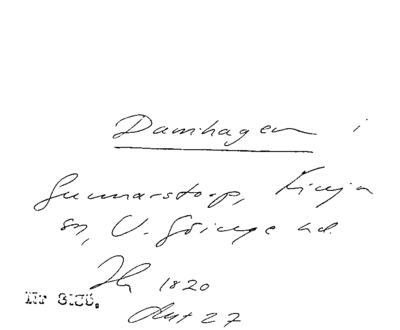 Damhagen i
Gunnarstorp, Finja
sn, V. Göinge hd.
Ih 1820
Akt 27
Nr 3135.